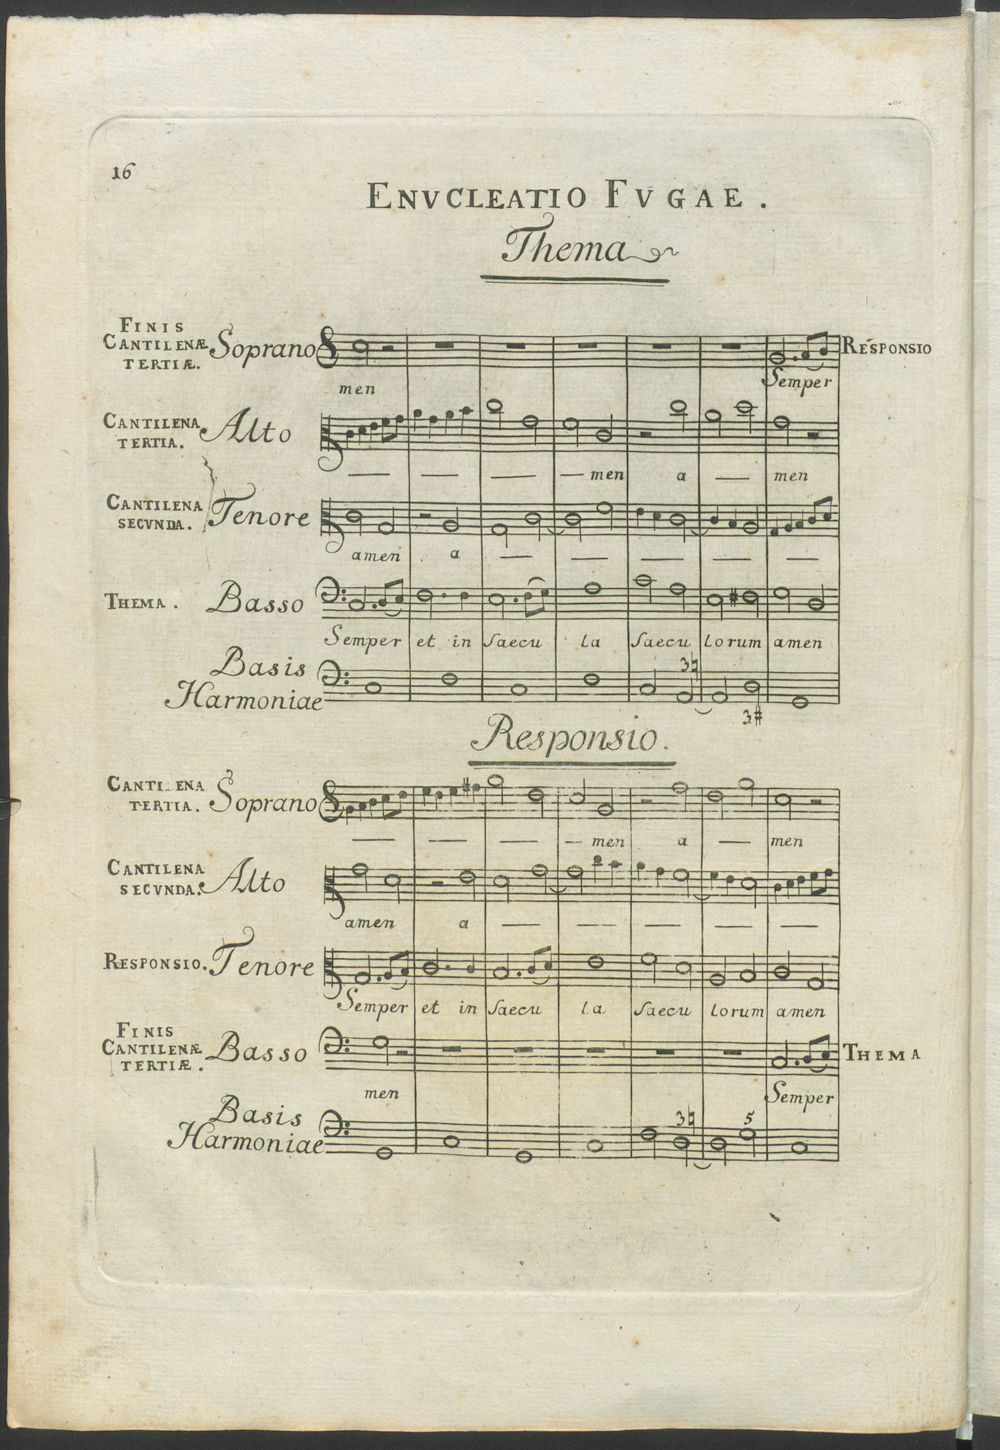 16
ENVCLEATIO FVGAE.
Thema
FINIS
CANTILENÆ
TERTIÆ.
Soprano
RESPONSIO
men Semper
CANTILENA
TERTIA.
Alto
men a men
CANTILENA
SECVNDA.
Tenore
amen a
THEMA. Basso
Semper et in saecu la saecu lorum amen
Basis
Harmoniae
3♮
3#
Responsio.
CANTILENA
TERTIA.
Soprano
men a men
CANTILENA
SECVNDA.
Alto
amen a
RESPONSIO. Tenore
Semper et in saecu la saecu lorum amen
FINIS
CANTILENÆ
TERTIÆ.
Basso
THEMA
men Semper
Basis
Harmoniae
3♮ 5